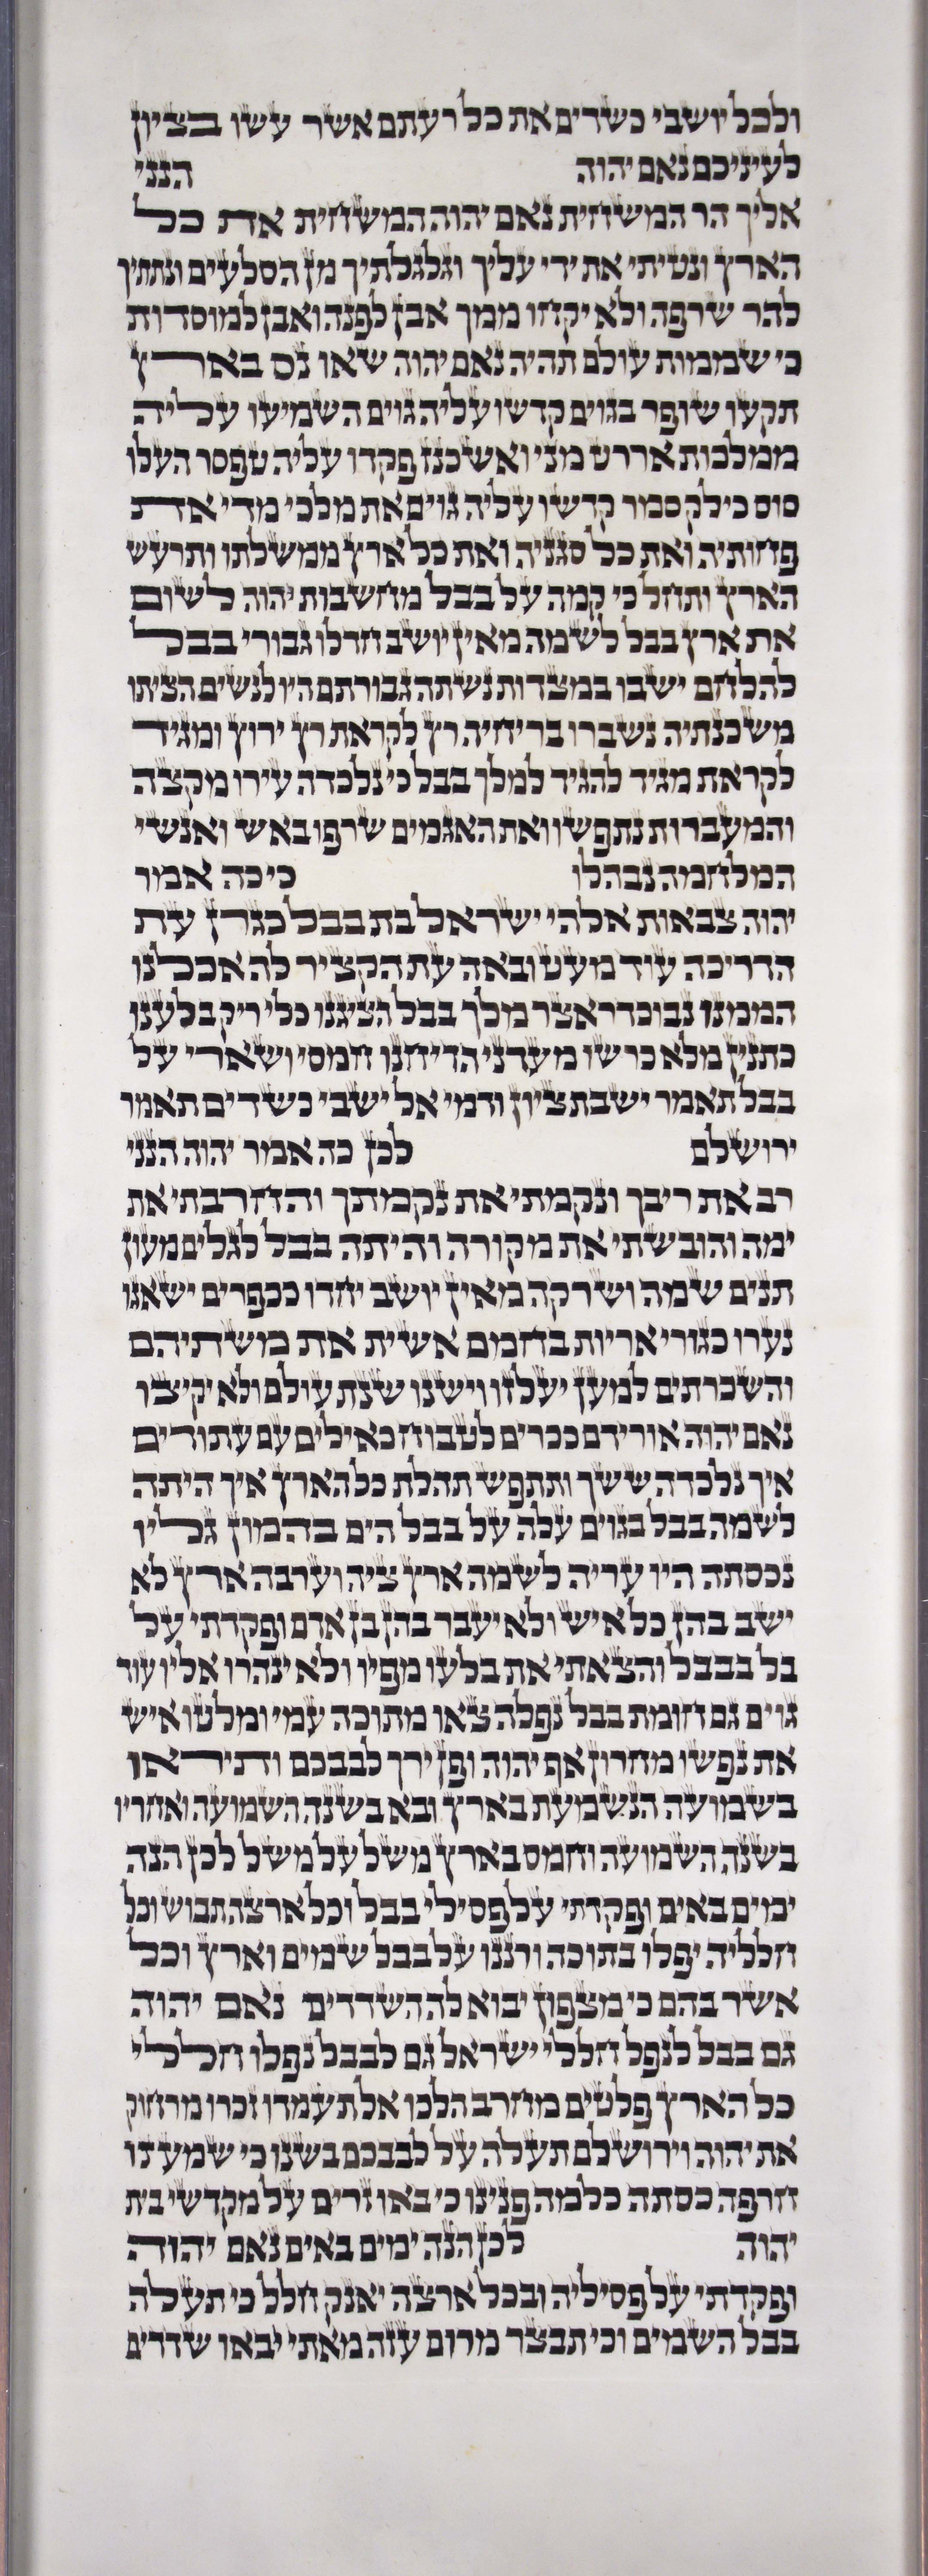 ולכל יושבי כשדים את כל רעתם אשר עשו בציון
לעיניכם נאם יהוה הנני
אליך הר המשחית נאם יהוה המשחית את כל
הארץ ונטיתי את ידי עליך וגלגלתיך מן הסלעים ונתתיך
להר שרפה ולא יקחו ממך אבן לפנה ואבן למוסדות
כי שממות עולם תהיה נאם יהוה שאו נס בארץ
תקעו שופר בגוים קדשו עליה גוים השמיעו עליה
ממלכות אררט מני ואשכנז פקדו עליה טפסר העלו
סוס כילק סמר קדשו עליה גוים את מלכי מדי את
פחותיה ואת כל סגניה ואת כל ארץ ממשלתו ותרעש
הארץ ותחל כי קמה על בבל מחשבות יהוה לשום
את ארץ בבל לשמה מאין יושב חדלו גבורי בבל
להלחם ישבו במצדות נשתה גבורתם היו לנשים הציתו
משכנתיה נשברו בריחיה רץ לקראת רץ ירוץ ומגיד
לקראת מגיד להגיד למלך בבל כי נלכדה עירו מקצה
והמעברות נתפשו ואת האגמים שרפו באש ואנשי
המלחמה נבהלו כי כה אמר
יהוה צבאות אלהי ישראל בת בבל כגרן עת
הדריכה עוד מעט ובאה עת הקציר לה אכלנו
הממנו נבוכדראצר מלך בבל הציגנו כלי ריק בלענו
כתנין מלא כרשו מעדני הדיחנו חמסי ושארי על
בבל תאמר ישבת ציון ודמי אל ישבי כשדים תאמר
ירושלם לכן כה אמר יהוה הנני
רב את ריבך ונקמתי את נקמתך והחרבתי את
ימה והובשתי את מקורה והיתה בבל לגלים מעון
תנים שמה ושרקה מאין יושב יחדו ככפרים ישאגו
נערו כגורי אריות בחמם אשית את משתיהם
והשכרתים למען יעלזו וישנו שנת עולם ולא יקיצו
נאם יהוה אורידם ככרים לטבוח כאילים עם עתודים
איך נלכדה ששך ותתפש תהלת כל הארץ איך היתה
לשמה בבל בגוים עלה על בבל הים בהמון גליו
נכסתה היו עריה לשמה ארץ ציה וערבה ארץ לא
ישב בהן כל איש ולא יעבר בהן בן אדם ופקדתי על
בל בבבל והצאתי את בלעו מפיו ולא ינהרו אליו עוד
גוים גם חומת בבל נפלה צאו מתוכה עמי ומלטו איש
את נפשו מחרון אף יהוה ופן ירך לבבכם ותיראו
בשמועה הנשמעת בארץ ובא בשנה השמועה ואחריו
בשנה השמועה וחמס בארץ משל על משל לכן הנה
ימים באים ופקדתי על פסילי בבל וכל ארצה תבוש וכל
חלליה יפלו בתוכה ורננו על בבל שמים וארץ וכל
אשר בהם כי מצפון יבוא לה השדדים נאם יהוה
גם בבל לנפל חללי ישראל גם לבבל נפלו חללי
כל הארץ פלטים מחרב הלכו אל תעמדו זכרו מרחוק
את יהוה וירושלם תעלה על לבבכם בשנו כי שמענו
חרפה כסתה כלמה פנינו כי באו זרים על מקדשי בית
יהוה לכן הנה ימים באים נאם יהוה
ופקדתי על פסיליה ובכל ארצה יאנק חלל כי תעלה
בבל השמים וכי תבצר מרום עזה מאתי יבאו שדדים